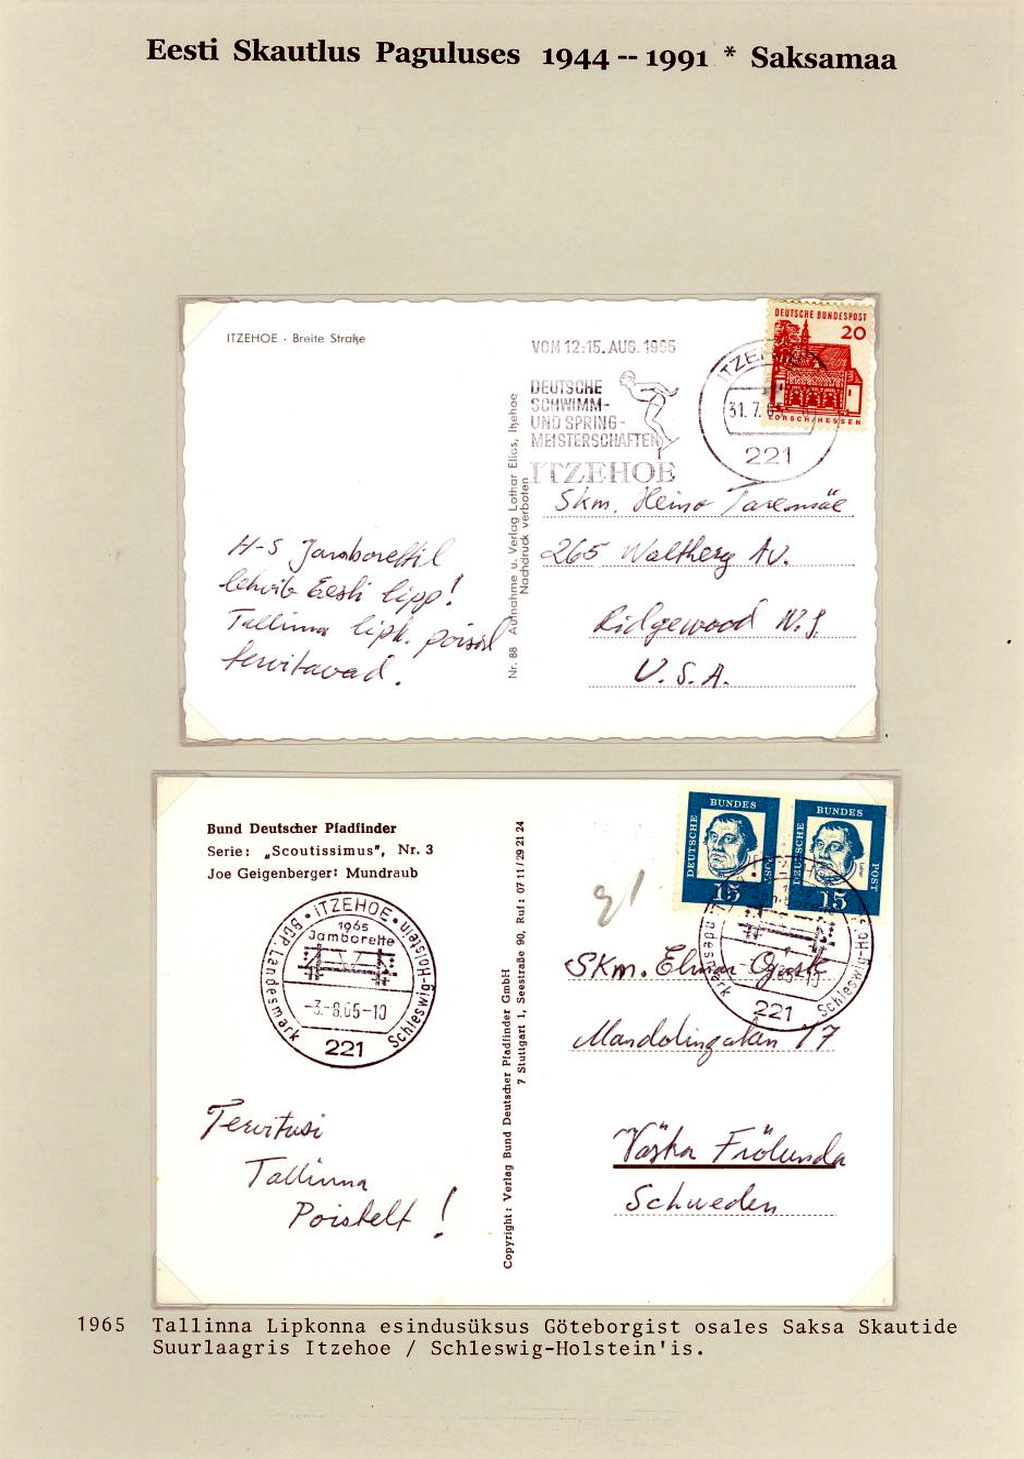 Eesti Skautlus Paguluses 1944 -- 1991 * Saksamaa
ITZEHOE · Breite Straße
VOM 12:15. AUG. 1965
DEUTSCHE
SCHWIMM-
UND SPRING-
MEISTERSCHAFTEN
ITZEHOE
ITZEHOE
31.7.65
221
DEUTSCHE BUNDESPOST
20
LORSCH/HESSEN
Nr. 88 Aufnahme u. Verlag Lothar Elias, Itzehoe
Nachdruck verboten
H-S Jamborettil
lehvib Eesti lipp!
Tallinna lipk. poisid
tervitavad.
Skm. Heino Taremäe
265 Waltherg Av.
Ridgewood N.J.
U.S.A.
Bund Deutscher Pfadfinder
Serie: „Scoutissimus", Nr. 3
Joe Geigenberger: Mundraub
ITZEHOE
1965
Jamborette
BDP. Landesmark Schleswig-Holstein
-3.-8.65-10
221
Copyright: Verlag Bund Deutscher Pfadfinder GmbH
7 Stuttgart 1, Seestraße 90, Ruf: 07 11 / 29 21 24
DEUTSCHE BUNDES POST
15
DEUTSCHE BUNDES POST
15
Landesmark Schleswig-Hol
221
Tervitusi
Tallinna
Poistelt!
Skm. Elmar
Mandolingatan 17
Västra Frölunda
Schweden
1965 Tallinna Lipkonna esindusüksus Göteborgist osales Saksa Skautide
Suurlaagris Itzehoe / Schleswig-Holstein'is.